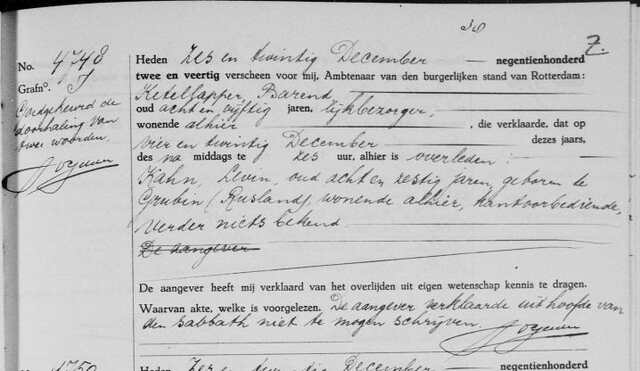 7.
No. 4748
Grafno. J
Goedgekeurd de
doorhaling van
twee woorden.
Heden zes en twintig December negentienhonderd
twee en veertig verscheen voor mij, Ambtenaar van den burgerlijken stand van Rotterdam:
Ketellapper, Barend
oud acht en vijftig jaren, lijkbezorger,
wonende alhier, die verklaarde, dat op
vier en twintig December dezes jaars,
des na middags te zes uur, alhier is overleden:
Kahn, Levin, oud acht en zestig jaren, geboren te
Grubin (Rusland) wonende alhier, kantoorbediende,
verder niets bekend
De aangever
De aangever heeft mij verklaard van het overlijden uit eigen wetenschap kennis te dragen.
Waarvan akte, welke is voorgelezen. De aangever verklaarde uit hoofde van
den sabbath niet te mogen schrijven.
No. 4750
Heden zes en twintig December negentienhonderd